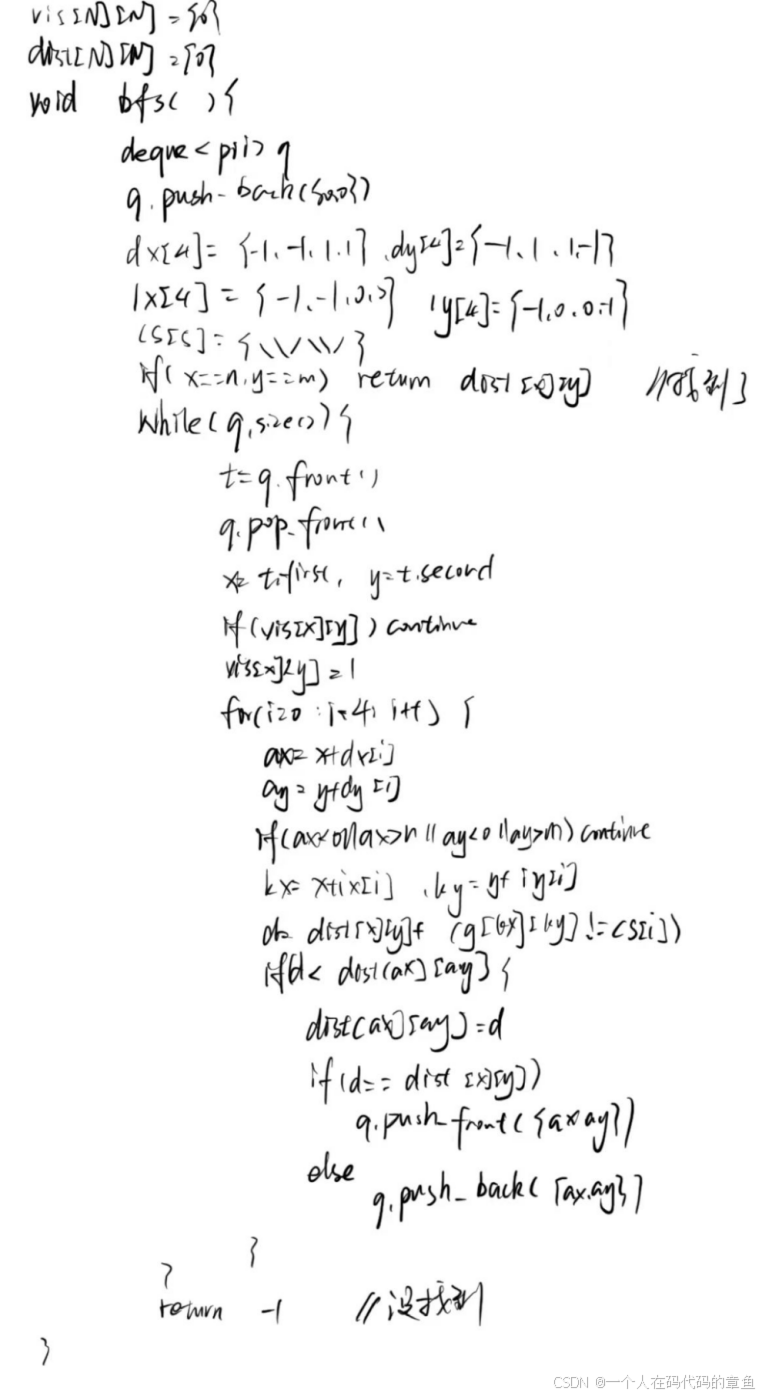 vis[N][N] = {0}
dist[N][N] = {0}
void bfs( ){
deque<pii> q
q.push-back({0,0})
dx[4] = {-1,-1,1,1} ,dy[4]={-1,1,1,-1}
ix[4] = {-1,-1,0,0} iy[4]={-1,0,0,-1}
cs[5]={\\/\\/}
if(x==n,y==m) return dist[x][y] //找到了
while(q.size()){
t=q.front()
q.pop-front()
x=t.first, y=t.second
if(vis[x][y])continue
vis[x][y]=1
for(i=0;i<4;i++){
ax=x+dx[i]
ay=y+dy[i]
if(ax<0||ax>n||ay<0||ay>m)continue
kx=x+ix[i] ,ky=y+iy[i]
d=dist[x][y]+(g[kx][ky]!=cs[i])
if(d<dist[ax][ay]{
dist[ax][ay]=d
if(d==dist[x][y])
q.push-front({ax,ay})
else
q.push_back({ax,ay})
}
}
return -1 //没找到
}
CSDN @一个人在码代码的章鱼